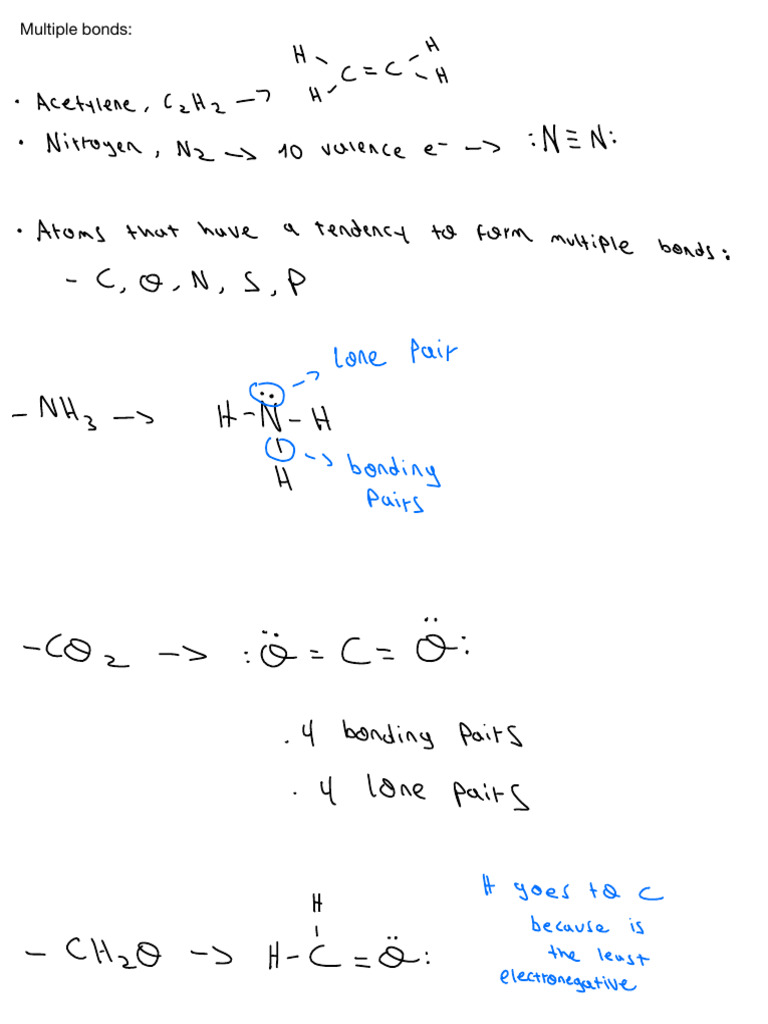 Multiple bonds:
• Acetylene, C₂H₂ → H H C = C H H
• Nitrogen, N₂ → 10 valence e⁻ → :N≡N:
• Atoms that have a tendency to form multiple bonds:
- C, O, N, S, P
→ lone pair
- NH₃ → H-N̈-H
→ bonding
H
pairs
- CO₂ → :Ö=C=Ö:
. 4 bonding pairs
. 4 lone pairs
H
H goes to C
because is
the least
electronegative
- CH₂O → H-C=Ö: